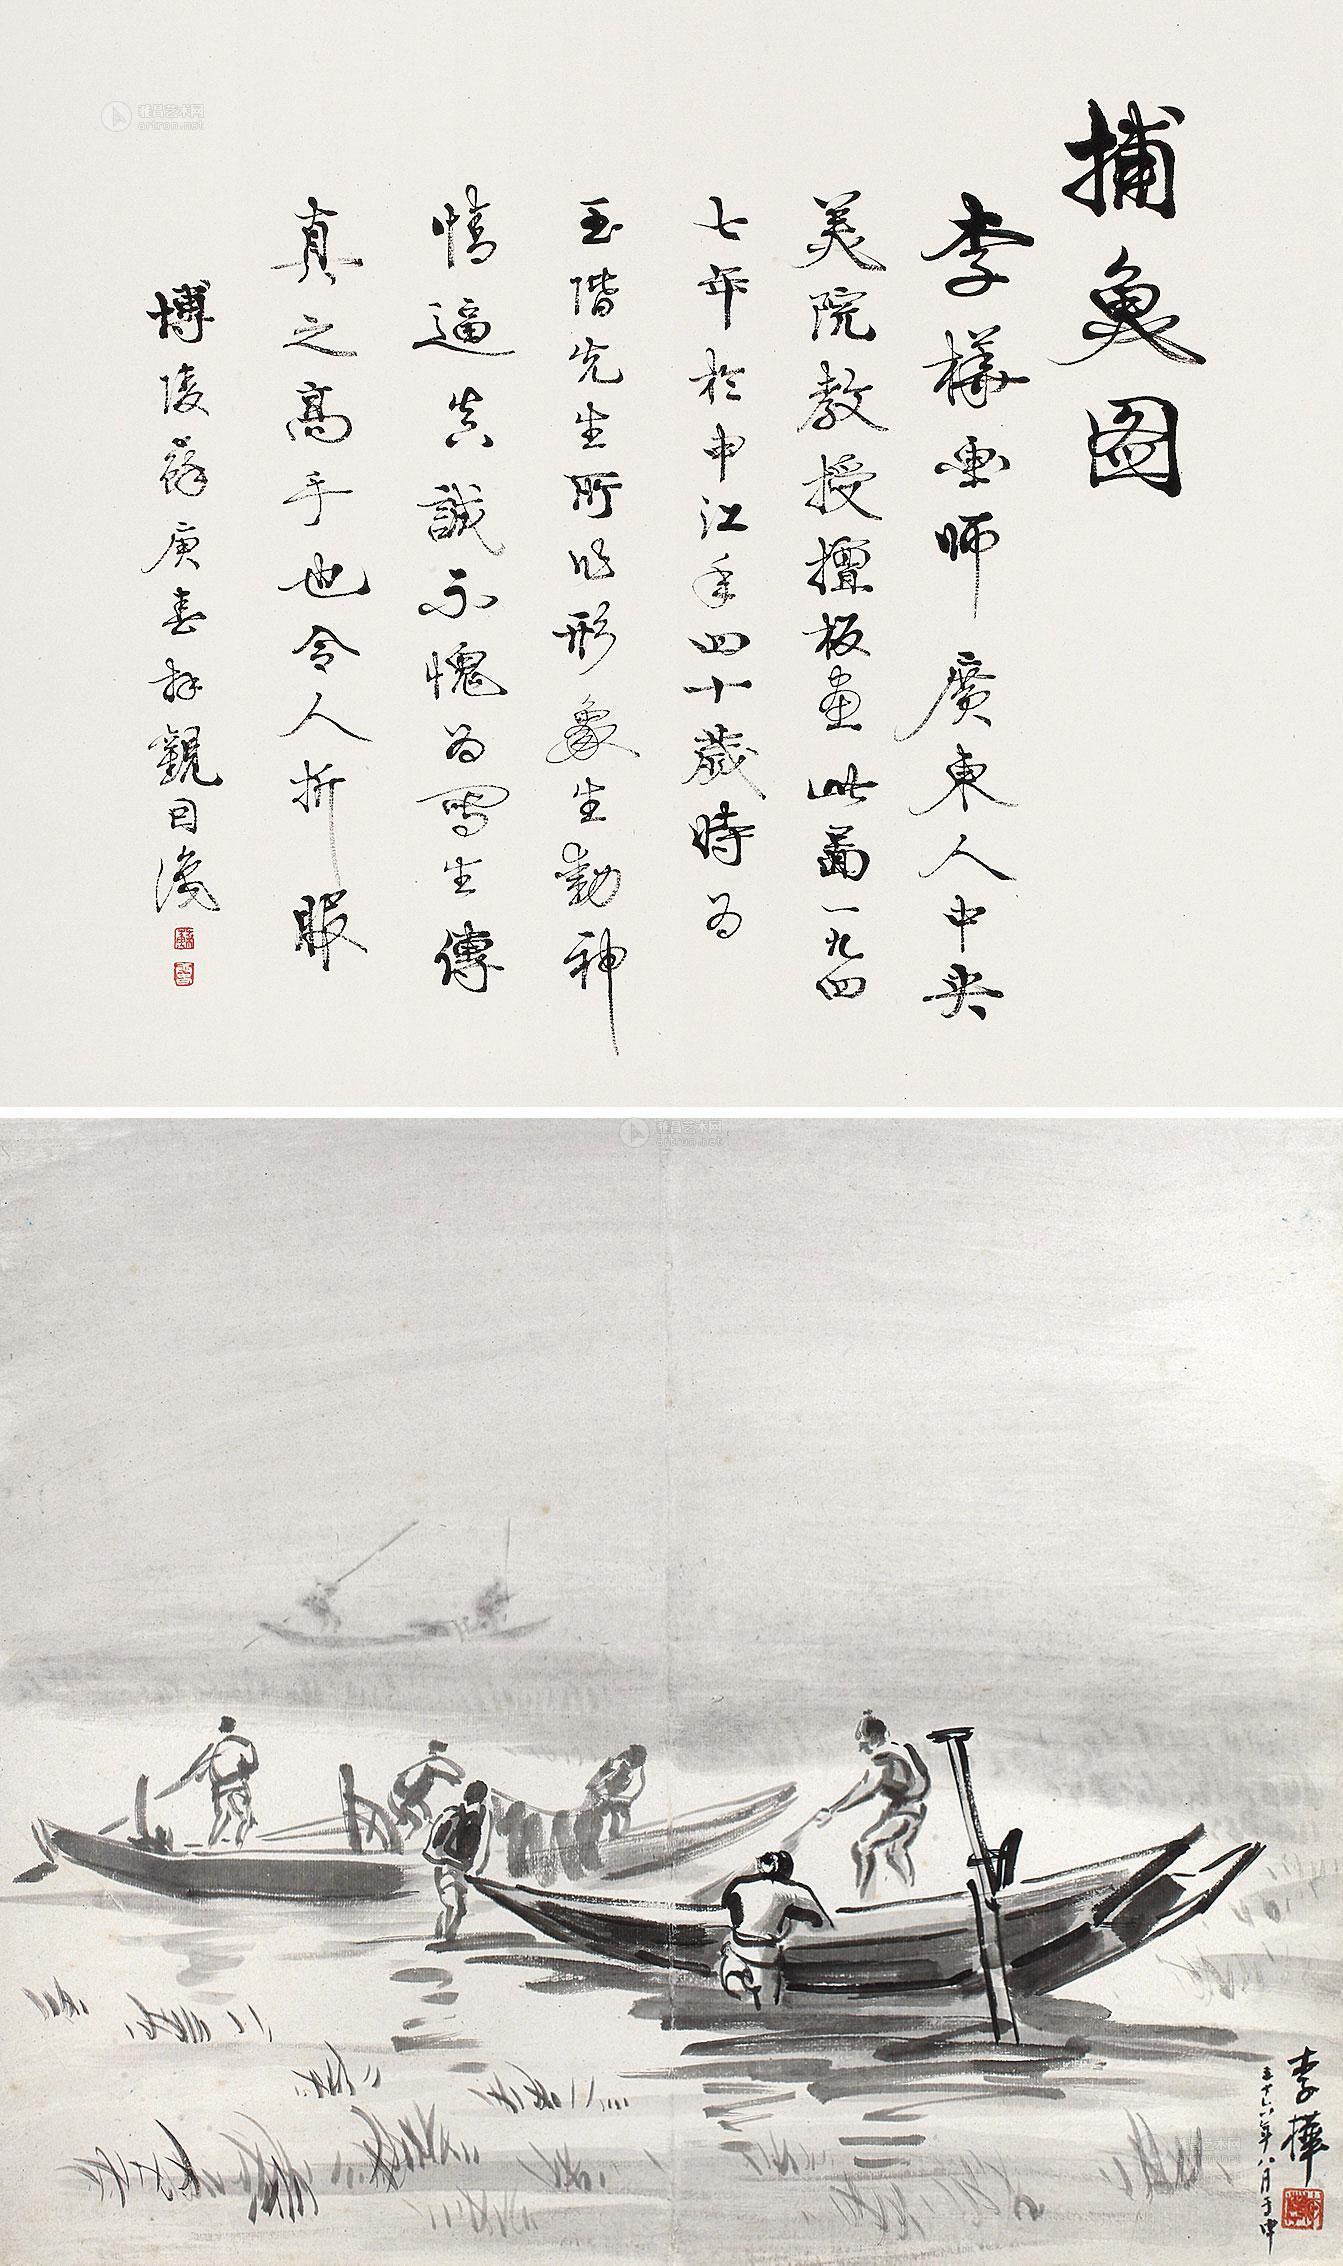 捕魚图
李樺畫师廣東人中央
美院教授擅板畫此圖一九四
七年於申江年四十歲時为
玉階先生所作形象生動神
情逼真誠不愧为写生傳
真之高手也令人折服
博陵蘇庚春拜觀目後
雅昌艺术网
artron.net
雅昌艺术网
artron.net
李樺
三十六年八月于申